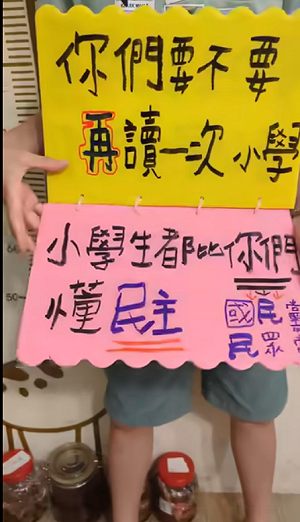 你們要不要
再讀一次小學
小學生都比你們
懂民主
國民黨
民眾黨